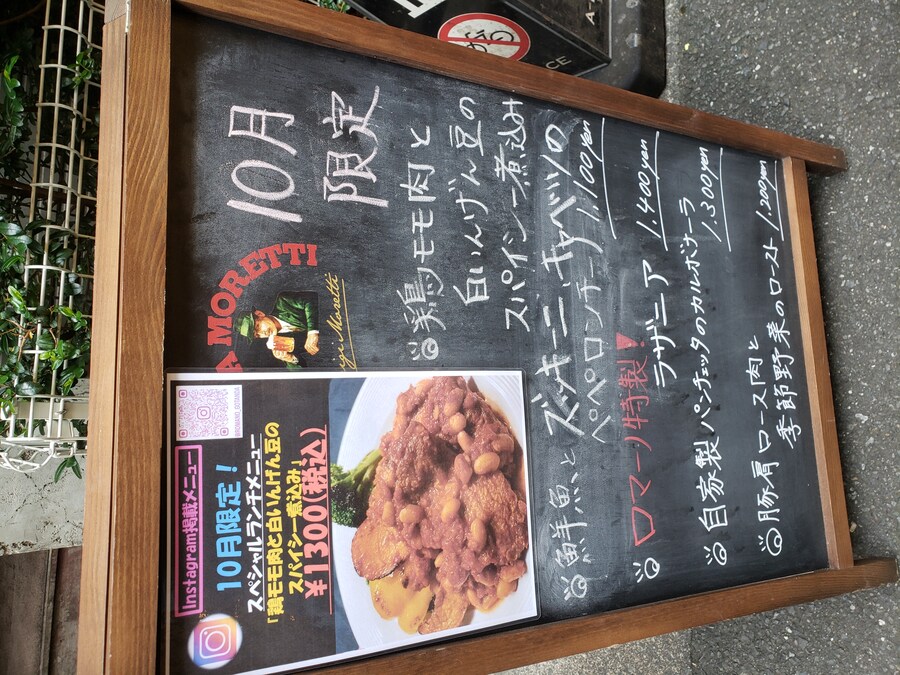 10月
限定
鶏モモ肉と
白いんげん豆の
スパイシー煮込み
鮮魚と
ズッキーニ、キャベツの
ペペロンチーノ 1,100yen
ロマーノ特製!
ラザニア 1,400yen
自家製パンチェッタのカルボナーラ
1,300yen
豚肩ロース肉と
季節野菜のロースト 1,200yen
MORETTI
Instagram掲載メニュー
10月限定!
スペシャルランチメニュー
「鶏モモ肉と白いんげん豆の
スパイシー煮込み」
¥1300(税込)